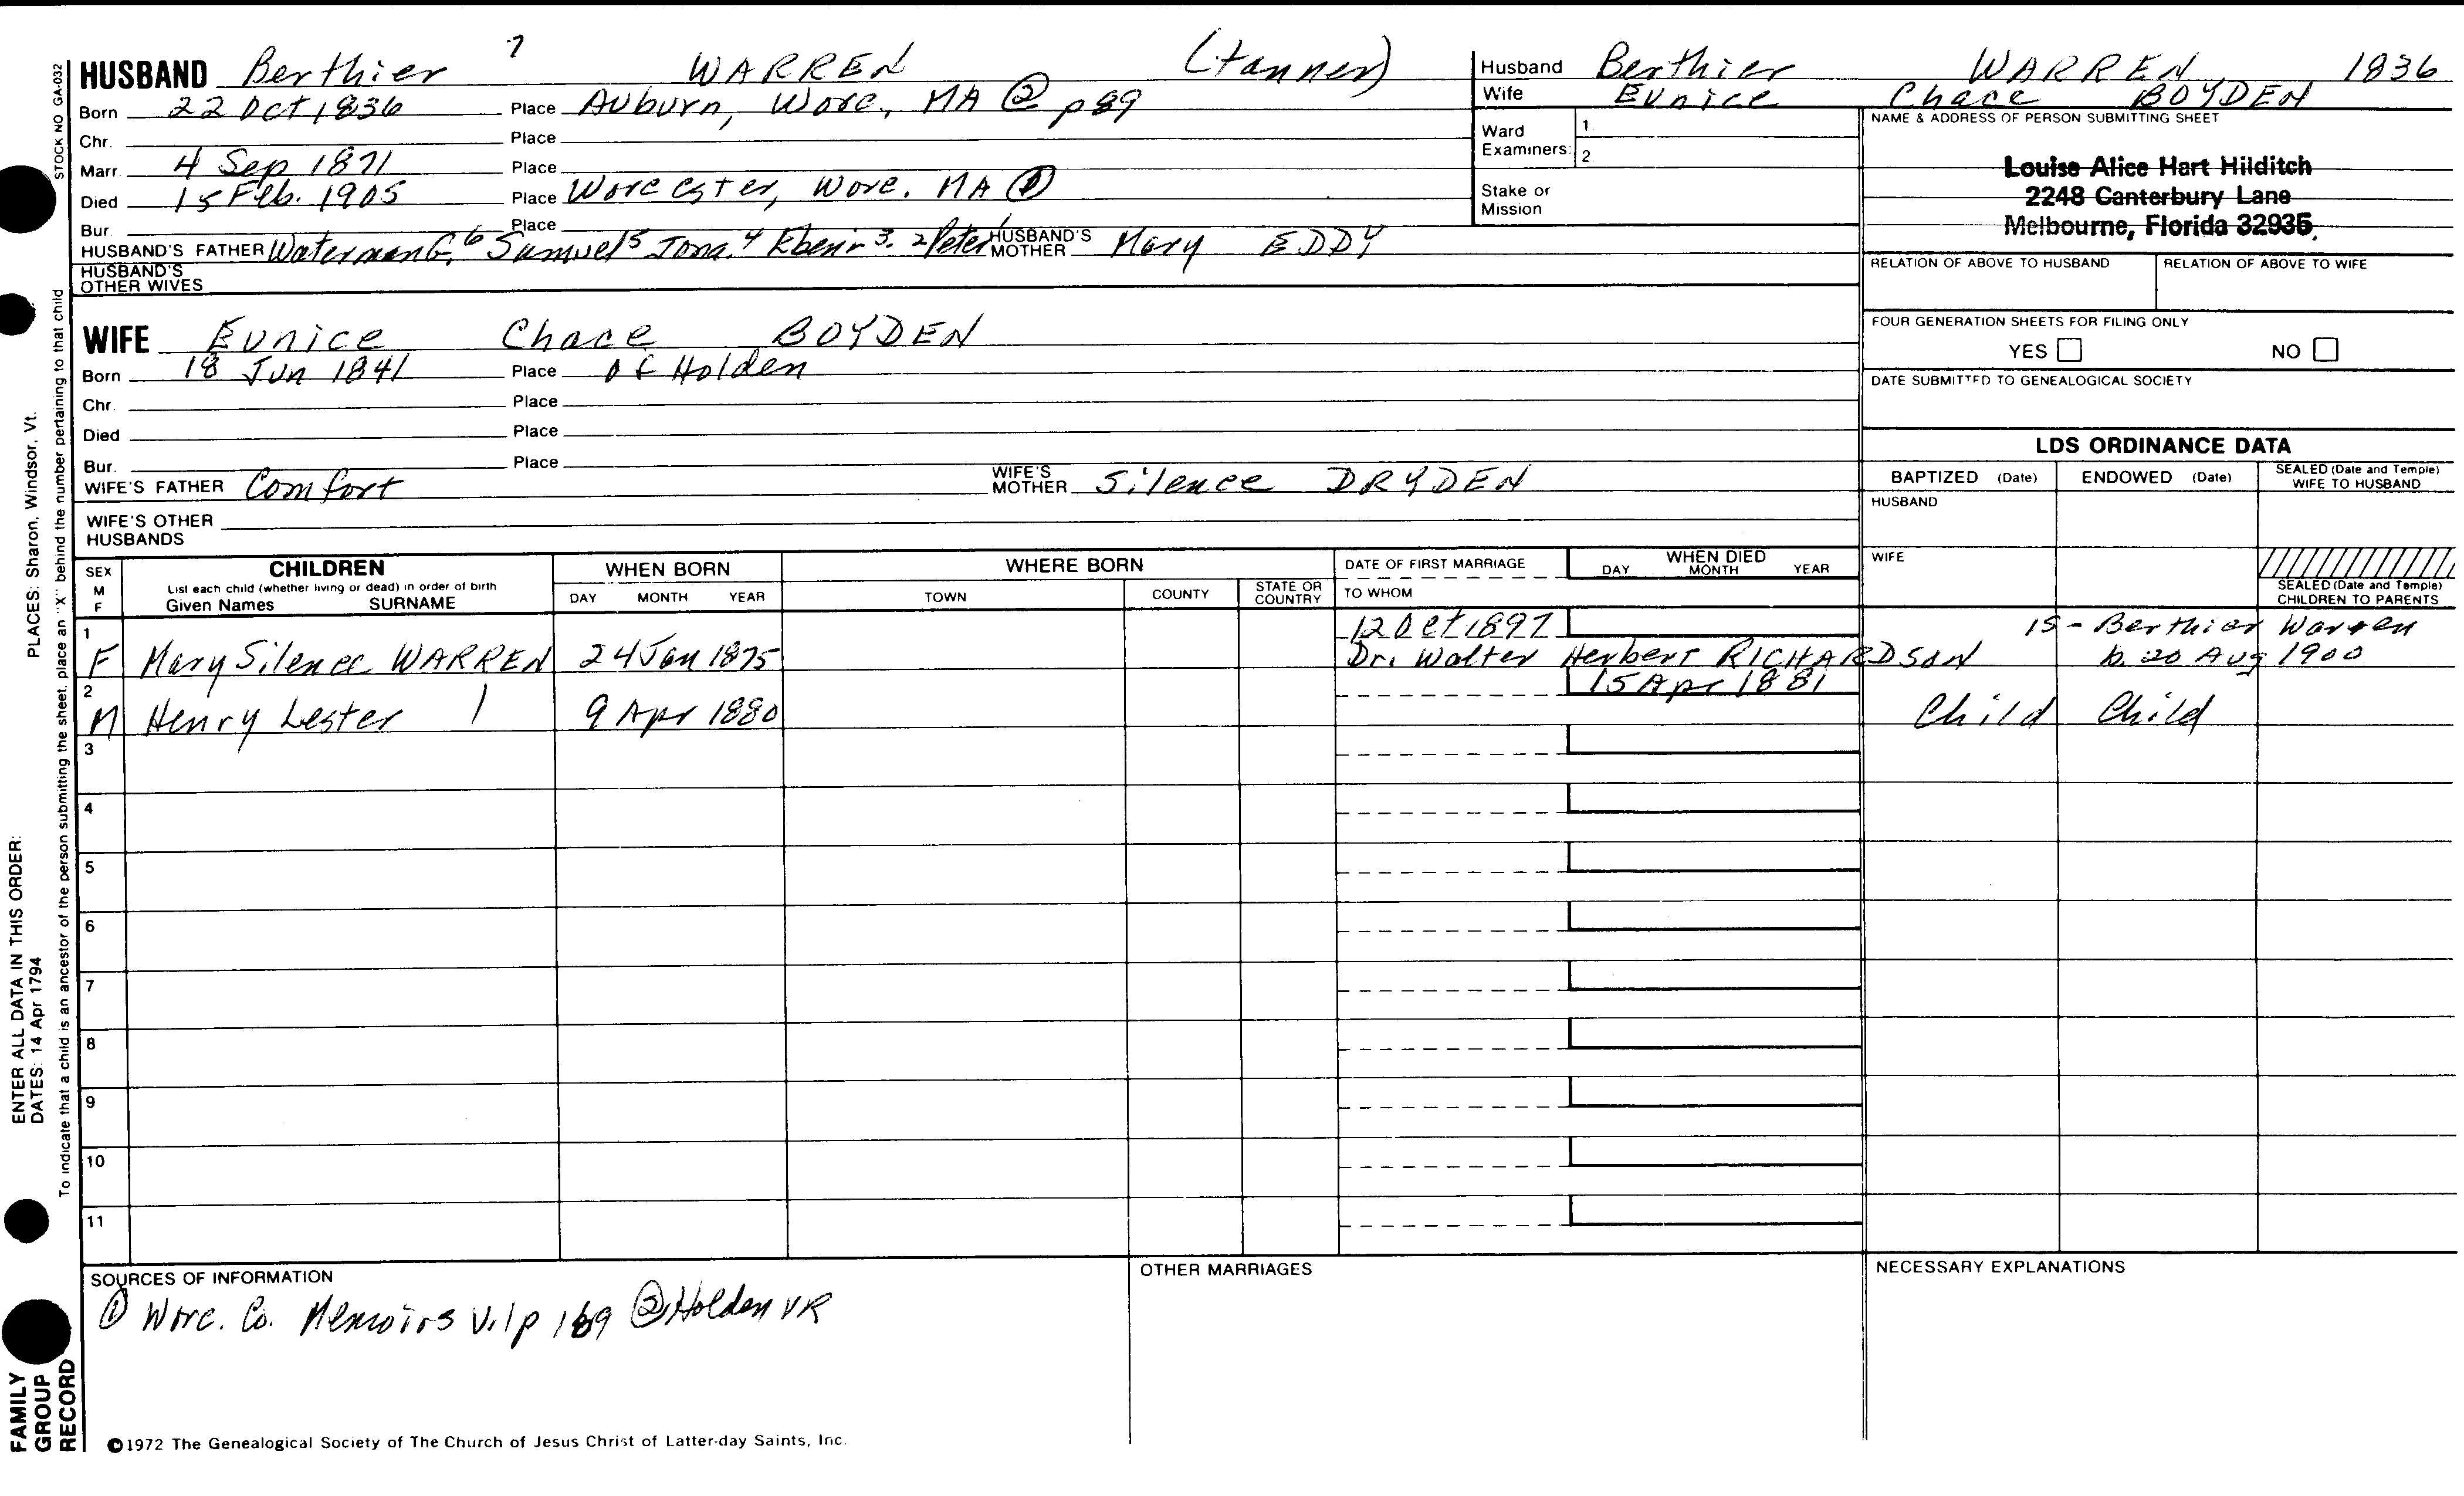 HUSBAND Berthier 7 WARREN (tanner)
Born 22 Oct 1836 Place Auburn, Worc, MA ② p 89
Chr. Place
Marr. 4 Sep 1871 Place
Died 15 Feb. 1905 Place Worcester, Worc. MA ①
Bur. Place
HUSBAND'S FATHER Waterman G. 6 Samuel 5 Jona. 4 Ebenr 3. 2 Peter 1 HUSBAND'S MOTHER Mary EDDY
HUSBAND'S OTHER WIVES
Husband Berthier WARREN 1836
Wife Eunice Chace BOYDEN
Ward Examiners: 1. 2.
Stake or Mission
NAME & ADDRESS OF PERSON SUBMITTING SHEET
Louise Alice Hart Hilditch
2248 Canterbury Lane
Melbourne, Florida 32935
RELATION OF ABOVE TO HUSBAND RELATION OF ABOVE TO WIFE
FOUR GENERATION SHEETS FOR FILING ONLY
YES NO
DATE SUBMITTED TO GENEALOGICAL SOCIETY
WIFE Eunice Chace BOYDEN
Born 18 Jun 1841 Place of Holden
Chr. Place
Died Place
Bur. Place
WIFE'S FATHER Comfort WIFE'S MOTHER Silence DRYDEN
WIFE'S OTHER HUSBANDS
LDS ORDINANCE DATA
BAPTIZED (Date) ENDOWED (Date) SEALED (Date and Temple) WIFE TO HUSBAND
HUSBAND
WIFE
SEALED (Date and Temple) CHILDREN TO PARENTS
SEX M F
CHILDREN
List each child (whether living or dead) in order of birth
Given Names SURNAME
WHEN BORN
DAY MONTH YEAR
WHERE BORN
TOWN COUNTY STATE OR COUNTRY
DATE OF FIRST MARRIAGE
TO WHOM
WHEN DIED
DAY MONTH YEAR
1 F Mary Silence WARREN 24 Jan 1875 12 Oct 1897
Dr. Walter Herbert RICHARDSON
15 - Berthier Warren
b. 20 Aug 1900
2 M Henry Lester 9 Apr 1880 15 Apr 1881 Child Child
3
4
5
6
7
8
9
10
11
SOURCES OF INFORMATION
① Worc. Co. Memoirs V.1 p 169 ② Holden VR
OTHER MARRIAGES
NECESSARY EXPLANATIONS
©1972 The Genealogical Society of The Church of Jesus Christ of Latter-day Saints, Inc.
STOCK NO GA-032
To indicate that a child is an ancestor of the person submitting the sheet, place an "X" behind the number pertaining to that child
ENTER ALL DATA IN THIS ORDER:
DATES: 14 Apr 1794
PLACES: Sharon, Windsor, Vt.
FAMILY
GROUP
RECORD